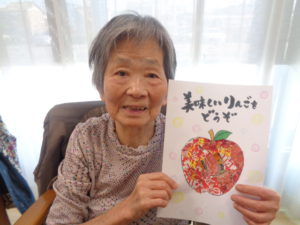 美味しいりんごも
どうぞ